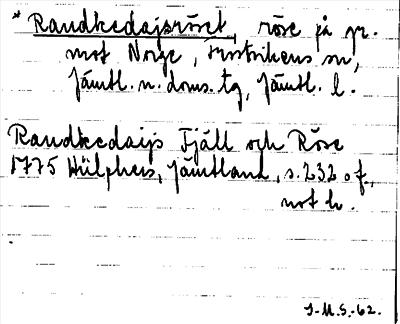 * Randkedajsröset, röse på gr.
mot Norge, Frostvikens sn,
Jämtl. n. doms. tg, Jämtl. l.
Randkedaijs Fjäll och Röse
1775 Hülphers, Jämtland, s. 232 o f.,
not h.
J-M.S.-62.